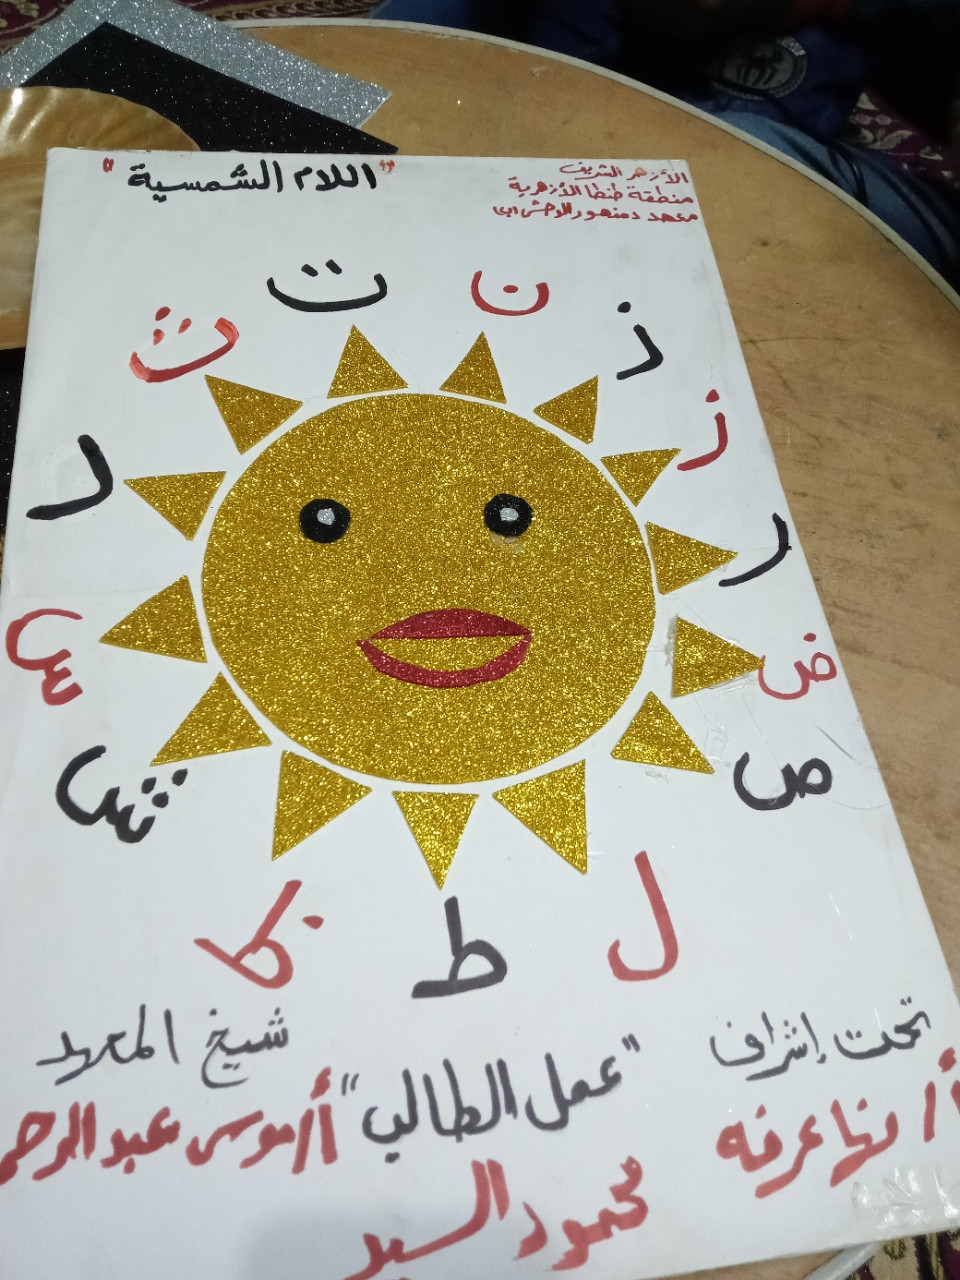 الأزهر الشريف
منطقة طنطا الأزهرية
معهد دمنهور الوحش ابى
"اللام الشمسية"
ت
ن
ث
ذ
ز
د
ر
س
ض
ش
ص
ظ
ط
ل
تحت إشراف
أ/ نها عرفه
"عمل الطالب"
محمود السيد
شيخ المعهد
أ/ موسى عبد الرحم